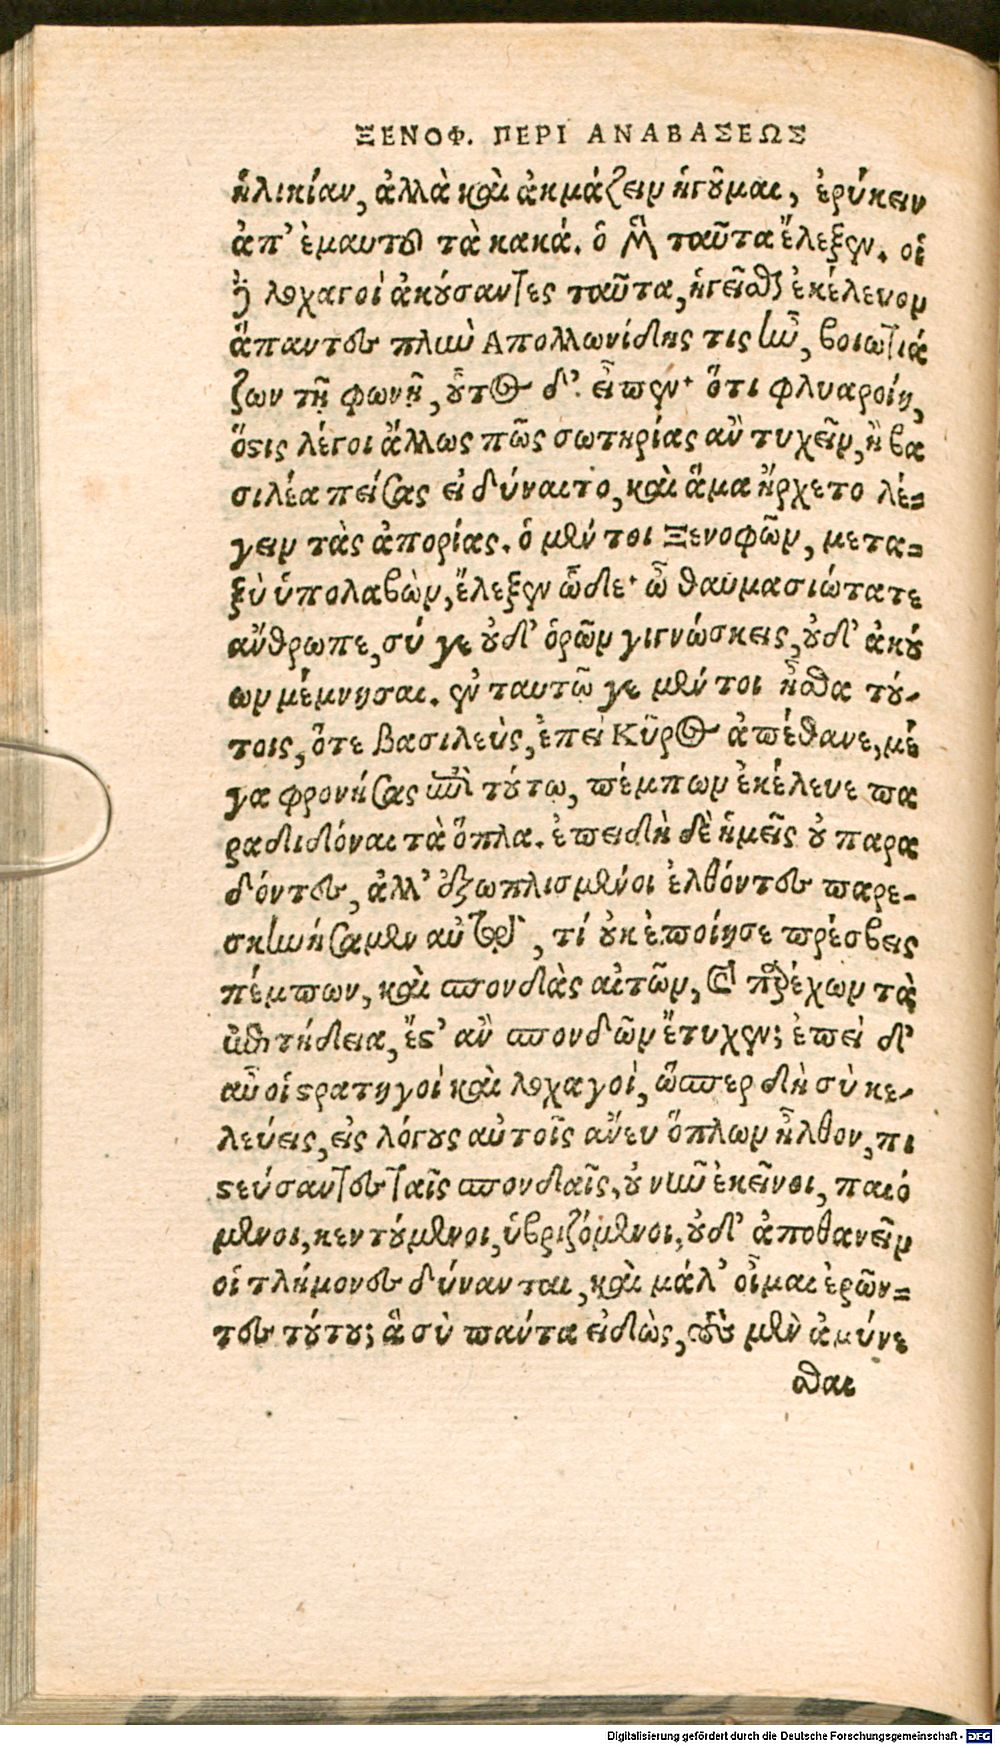 ΞΕΝΟΦ. ΠΕΡΙ ΑΝΑΒΑΣΕΩΣ
ἡλικίαν, ἀλλὰ καὶ ἀκμάζειν ἡγοῦμαι, ἐρύκειν
ἀπ' ἐμαυτοῦ τὰ κακά. ὁ μὲν ταῦτα ἔλεξεν. οἱ
δὲ λοχαγοὶ ἀκούσαντες ταῦτα, ἡγεῖσθαι ἐκέλευον
ἅπαντες πλὴν Ἀπολλωνίδης τις ἦν, βοιωτιά
ζων τῇ φωνῇ, οὗτος δ' εἶπεν· ὅτι φλυαροίη,
ὅστις λέγοι ἄλλως πῶς σωτηρίας ἂν τυχεῖν, ἢ βα
σιλέα πείσας εἰ δύναιτο, καὶ ἅμα ἤρχετο λέ=
γειν τὰς ἀπορίας. ὁ μέν τοι Ξενοφῶν, μετα=
ξὺ ὑπολαβὼν, ἔλεξεν ὧδε· ὦ θαυμασιώτατε
ἄνθρωπε, σύ γε οὐδ' ὁρῶν γιγνώσκεις, οὐδ' ἀκού
ων μέμνησαι. ἐν ταυτῷ γε μέν τοι ἦσθα τού-
τοις, ὅτε βασιλεὺς, ἐπεὶ Κῦρος ἀπέθανε, μέ
γα φρονήσας ἐπὶ τούτῳ, πέμπων ἐκέλευε πα
ραδιδόναι τὰ ὅπλα. ἐπειδὴ δὲ ἡμεῖς οὐ παρα
δόντες, ἀλλ' ἐξωπλισμένοι ἐλθόντες παρε-
σκηνήσαμεν αὐτῷ, τί οὐκ ἐποίησε πρέσβεις
πέμπων, καὶ σπονδὰς αἰτῶν, καὶ παρέχων τὰ
ἐπιτήδεια, ἔστ' ἂν σπονδῶν ἔτυχεν; ἐπεὶ δ'
αὖ οἱ στρατηγοὶ καὶ λοχαγοὶ, ὥσπερ δὴ σὺ κε-
λεύεις, εἰς λόγους αὐτοῖς ἄνευ ὅπλων ἦλθον, πι
στεύσαντες ταῖς σπονδαῖς, οὐ νῦν ἐκεῖνοι, παιό
μενοι, κεντούμενοι, ὑβριζόμενοι, οὐδ' ἀποθανεῖν
οἱ τλήμονες δύνανται, καὶ μάλ' οἶμαι ἐρῶν=
τες τούτου; ἃ σὺ πάντα εἰδὼς, τοὺς μὲν ἀμύνε
σθαι
Digitalisierung gefördert durch die Deutsche Forschungsgemeinschaft - DFG